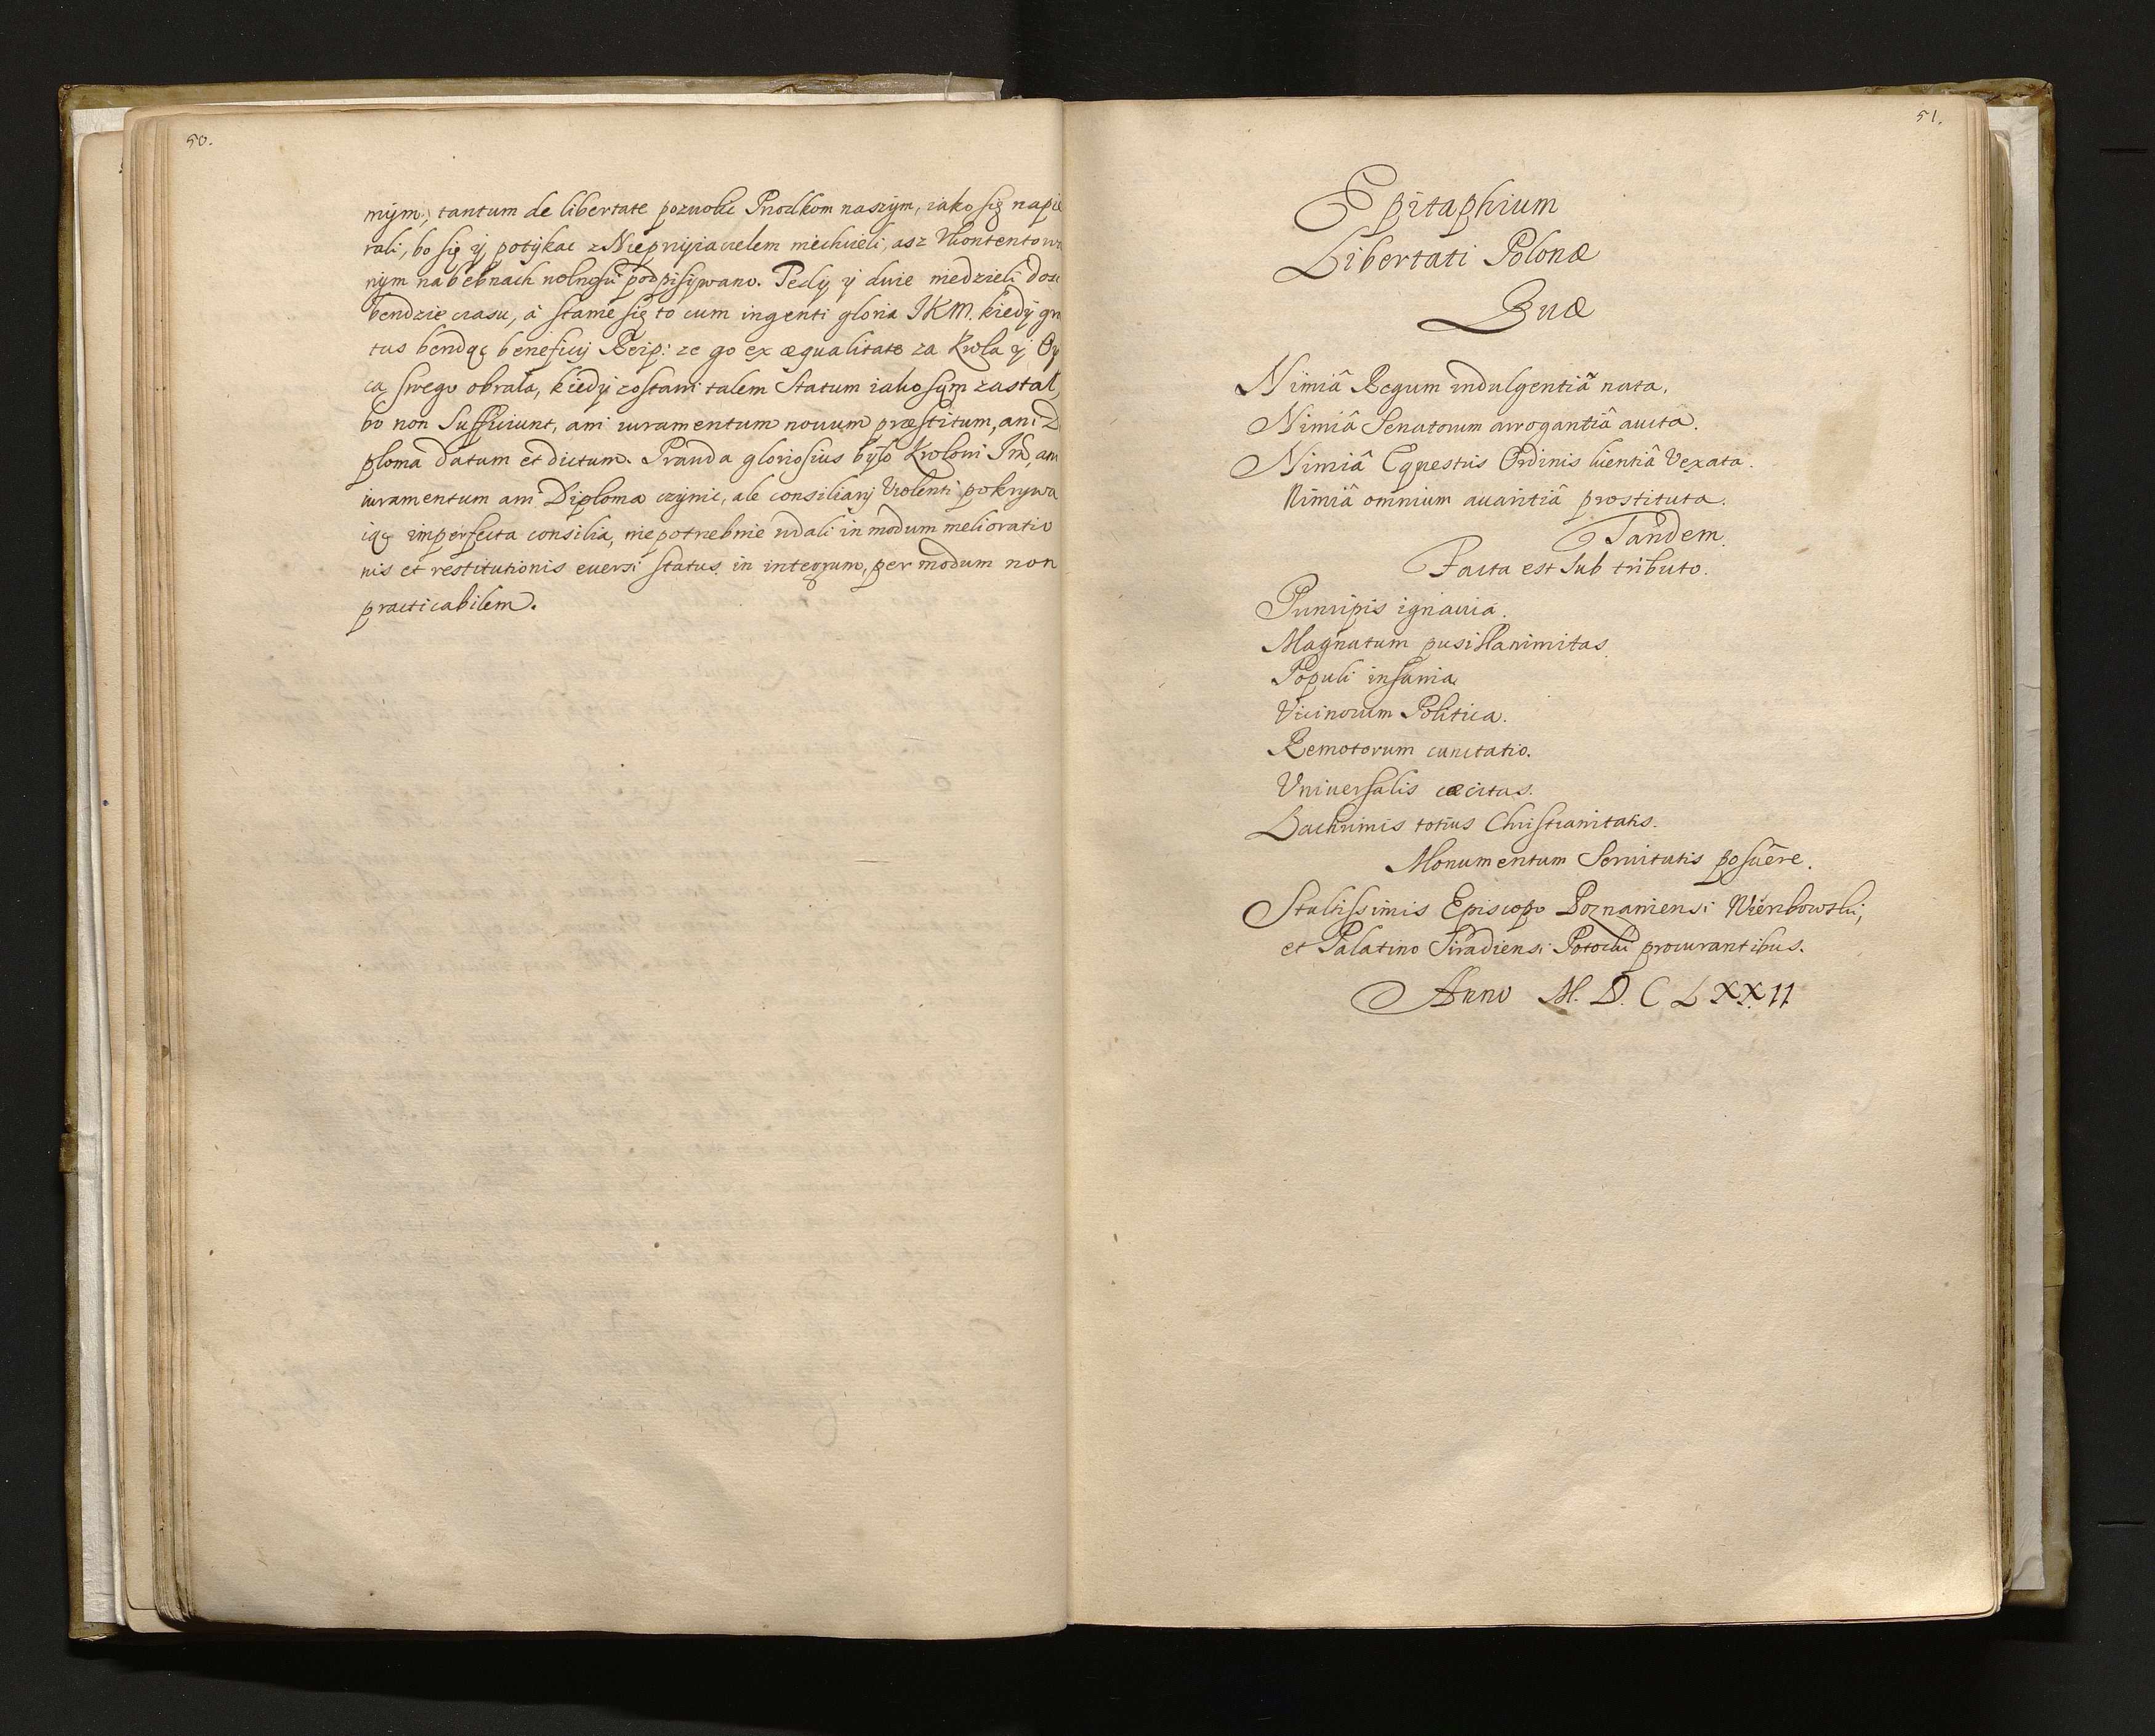 50.
mym, tantum de libertate pozwolic Przodkom naszym, iako się napie
rali, bo się ÿ potÿkac z Nieprzÿiacielem niechcieli, asz Vkontentowa
nÿm na bębnach podpisÿwano. Tedÿ ÿ dwie niedzieli dosc
bendzie czasu, à stanie się to cum ingenti gloria JKM. kiedÿ gra
tus bendąc beneficij Reip: ze go ex æqualitate za Krola ÿ Oy
ca swego obrała, kiedÿ zostawi talem Statum iako sÿm zastał,
bo non Sufficiunt, ani iuramentum nouum præstitum, ani Di
ploma datum et dictum. Prawda gloriosius bÿło Krolowi Jm, ani
iuramentum ani Diploma czÿnic, ale consiliarij Violenti pokrywa
iąc imperfecta consilia, niepotrzebnie wdali in modum melioratio
nis et restitutionis euersi status in integrum, per modum non
practicabilem.
51.
Epitaphium
Libertati Polonæ
Quæ
Nimiâ Regum indulgentiâ nata.
Nimiâ Senatorum arrogantiâ aucta.
Nimiâ Equestris Ordinis licentiâ Vexata.
Nimiâ omnium auaritiâ prostituta.
Tandem.
Facta est Sub tributo.
Principis ignauia.
Magnatum pusillanimitas
Populi insania
Vicinorum Politica.
Remotorum cunctatio.
Vniuersalis cæcitas.
Lachrimis totius Christianitatis.
Monumentum Seruitutis posuêre.
Stultissimis Episcopo Poznaniensi Wierzbowski,
et Palatino Siradiensi Potocki procurantibus.
Anno M. D. C L XX II